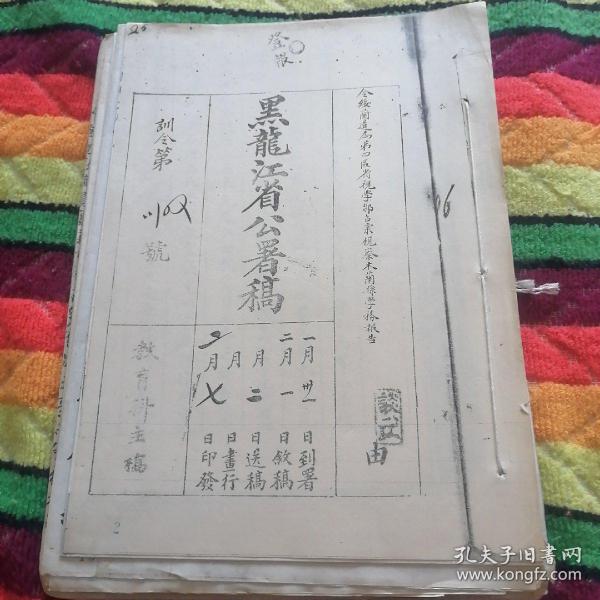 26
登報
令綏蘭道屬第四區省視學郭占東視察木蘭縣學務報告
由
黑龍江省公署稿
一月卅一日到署
二月一日敘稿
月二日送稿
月日畫行
二月七日印發
訓令第
號
教育科主稿
2
96
孔夫子旧书网
www.kongfz.com